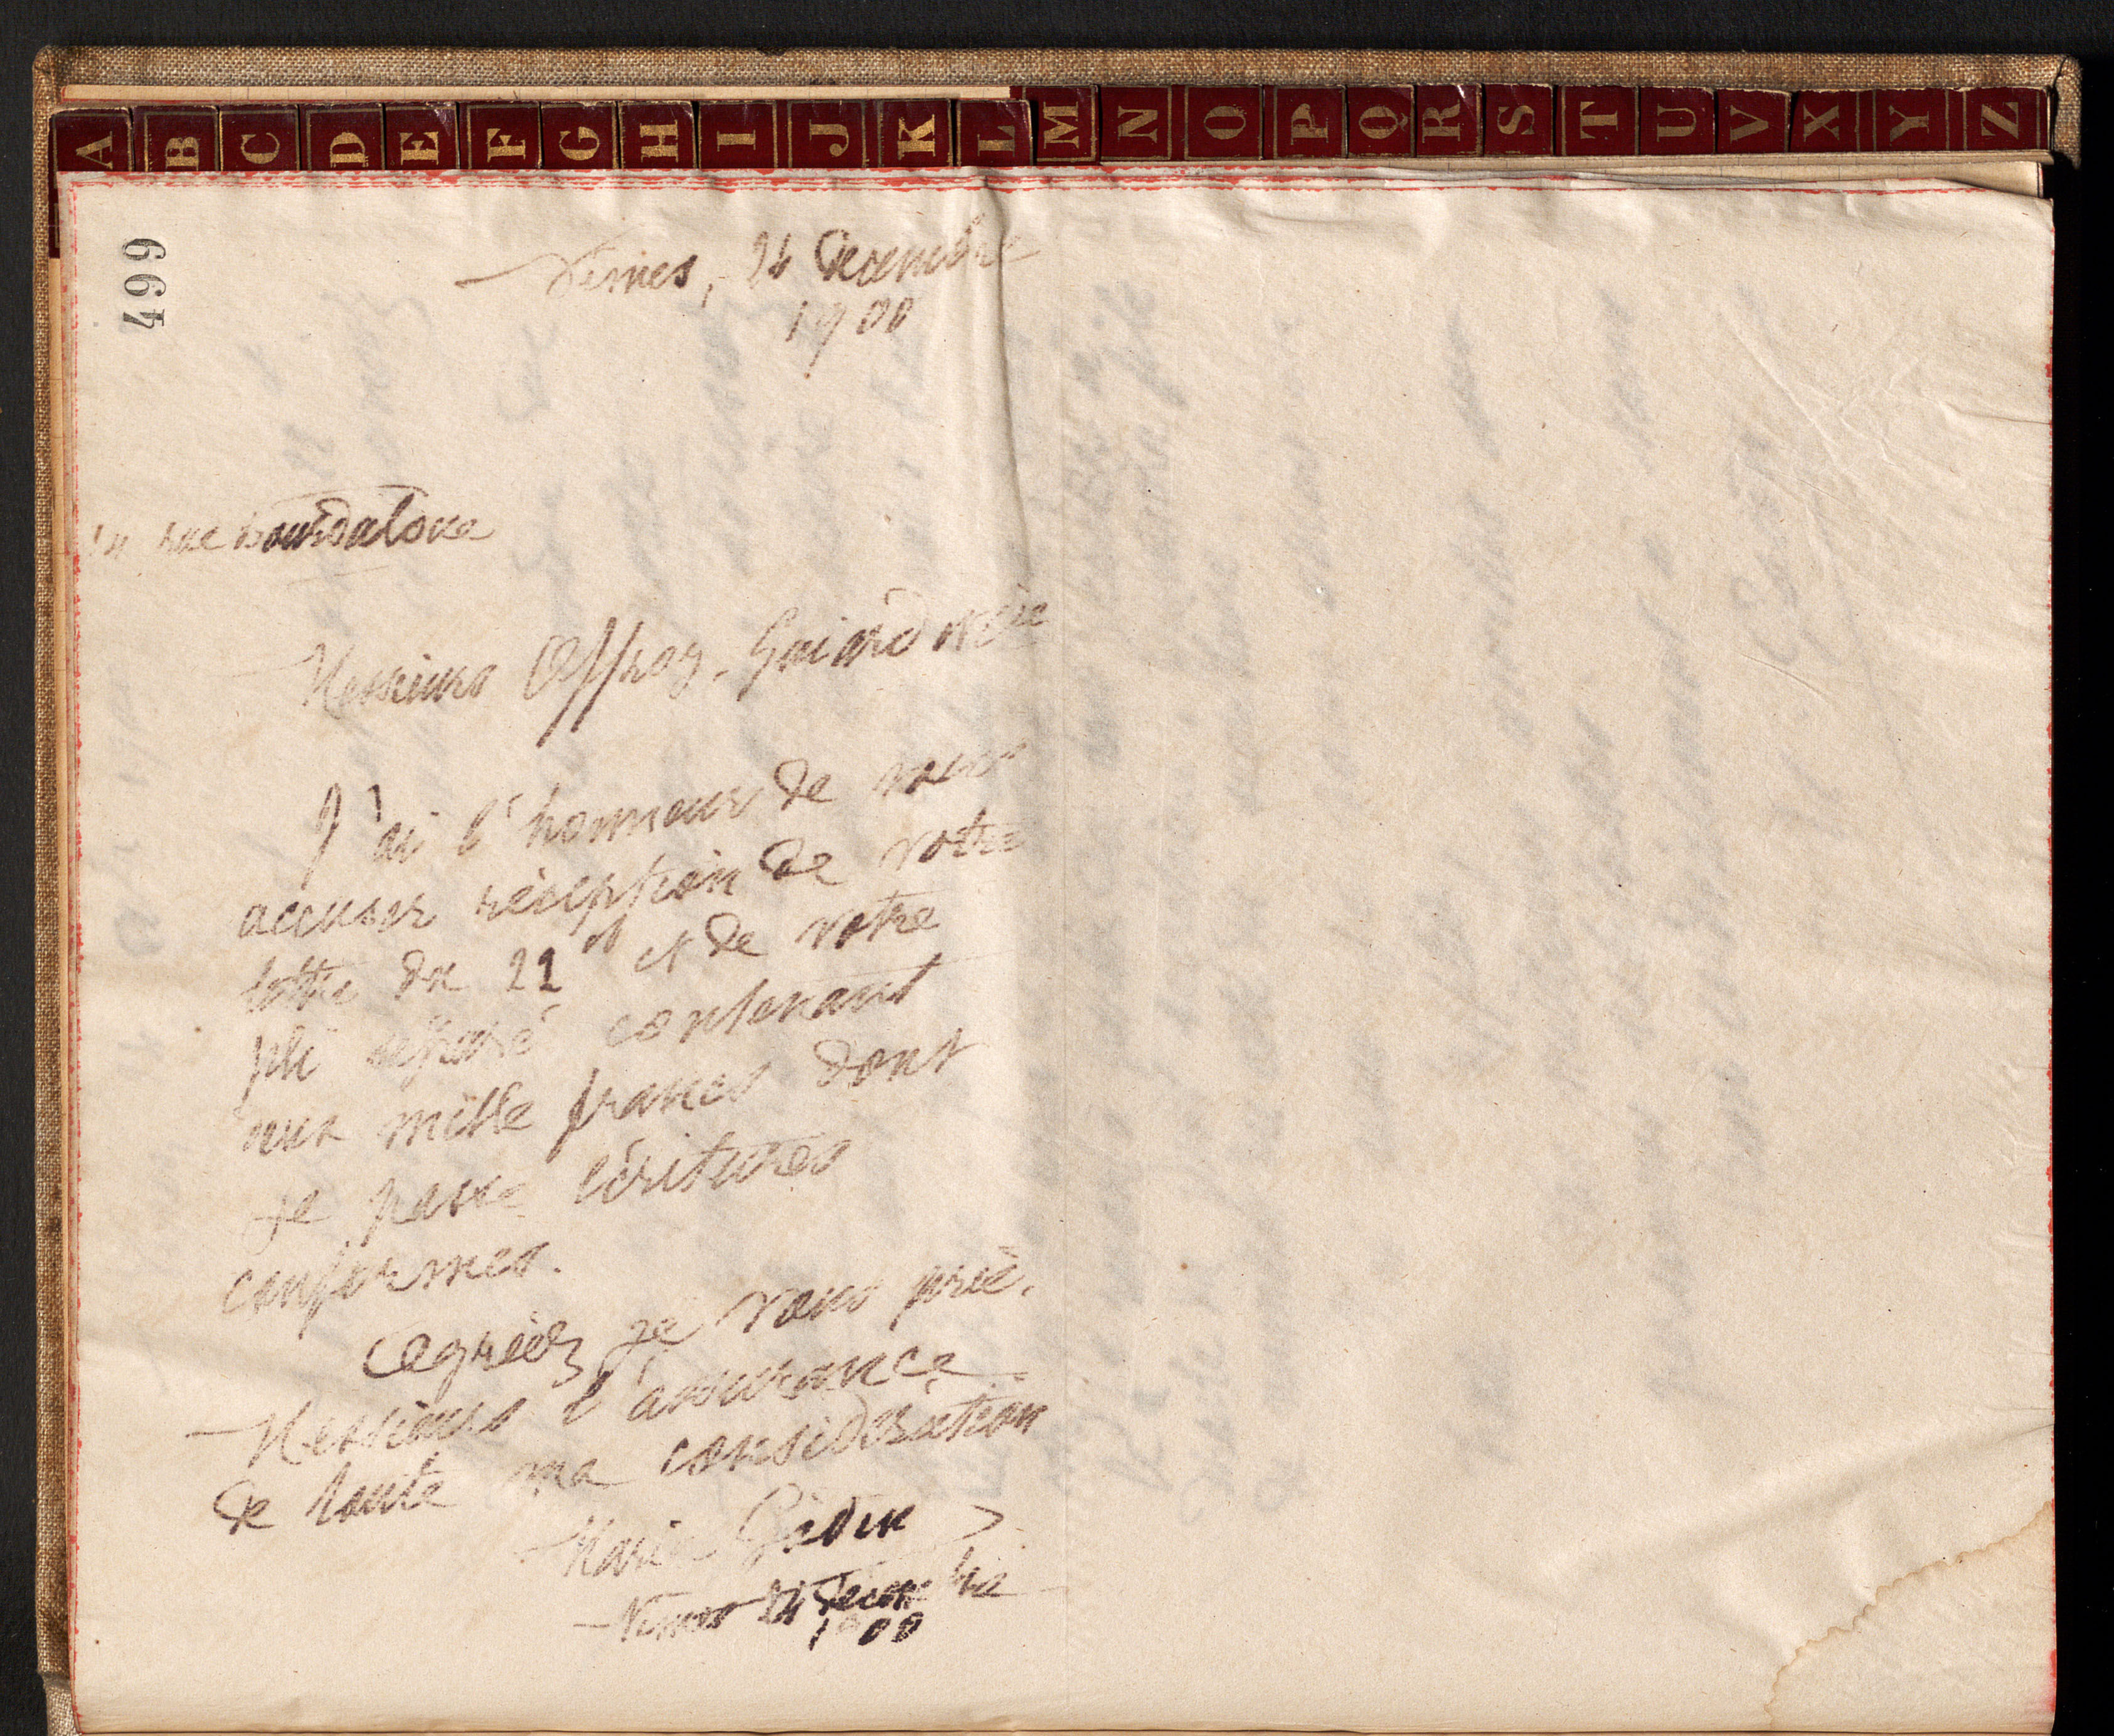 A B C D E F G H I J K L M N O P Q R S T U V X Y Z
499
Nimes, 24 Décembre
1900
14 rue Bourdaloue
Messieurs Offroy, Guiard et Cie
J'ai l'honneur de vous
accuser réception de votre
lettre du 22 et et de votre
pli séparé contenant
mille francs dont
je passe écritures
conformes.
Agréez je vous prie,
Messieurs l'assurance
de toute ma considération
Marie Godin
Nimes 24 Décembre
1900